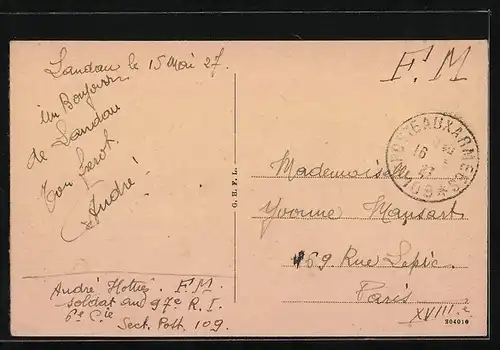 Landau le 15 Mai 27.
F. M
un Bonjour
de Landau
Ton
André!
G. H. F. L.
POSTE AUX ARMEES
16
27
*108*
Mademoiselle
Yvonne Maysart
69 Rue Lepic.
Paris
XVIII.e
André F. M.
soldat au 97e R. I.
6e Cie
Sect. Post. 109.
204010